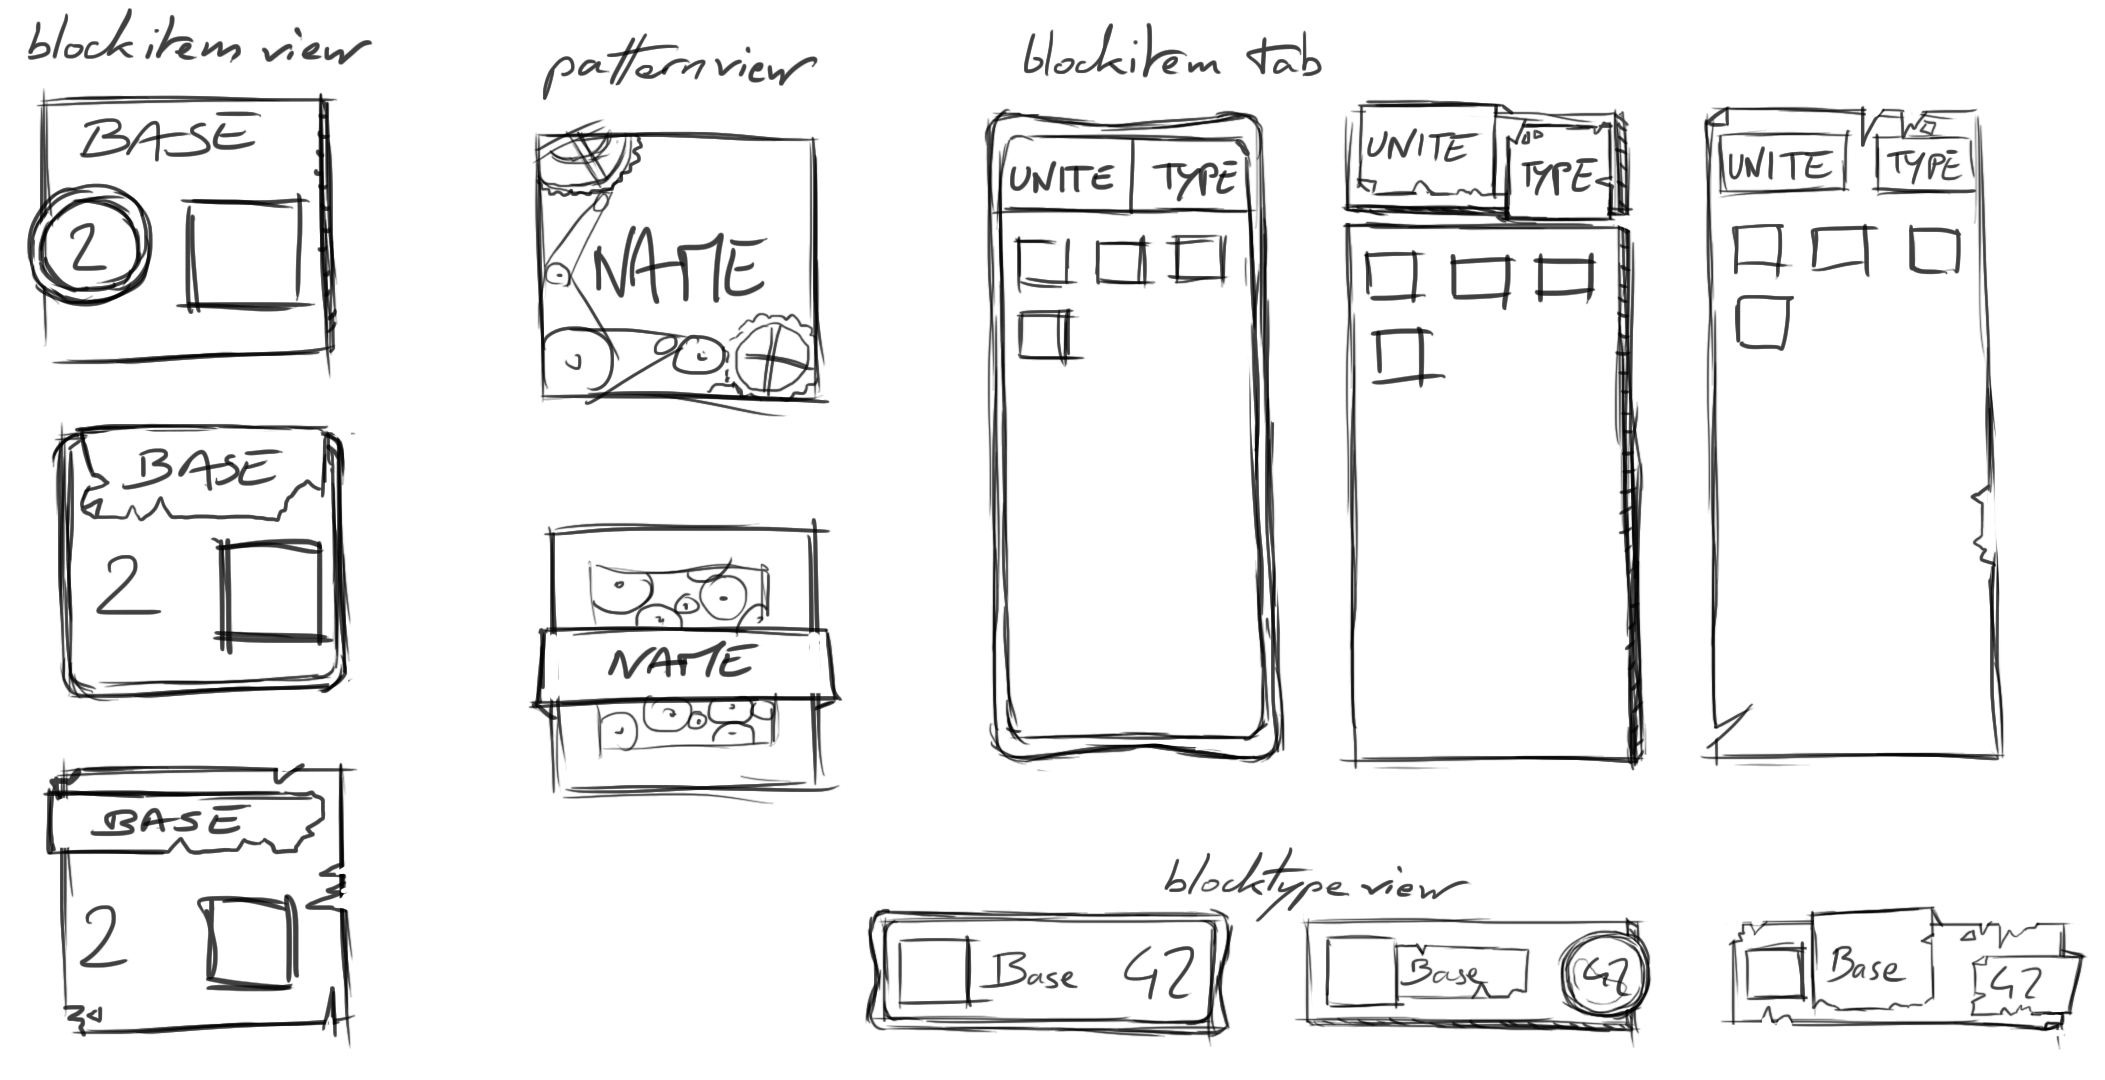 blockitem view
BASE
2
BASE
2
BASE
2
patternview
NAME
NAME
blockitem tab
UNITE TYPE
UNITE TYPE
UNITE TYPE
blocktype view
Base 42
Base 42
Base 42